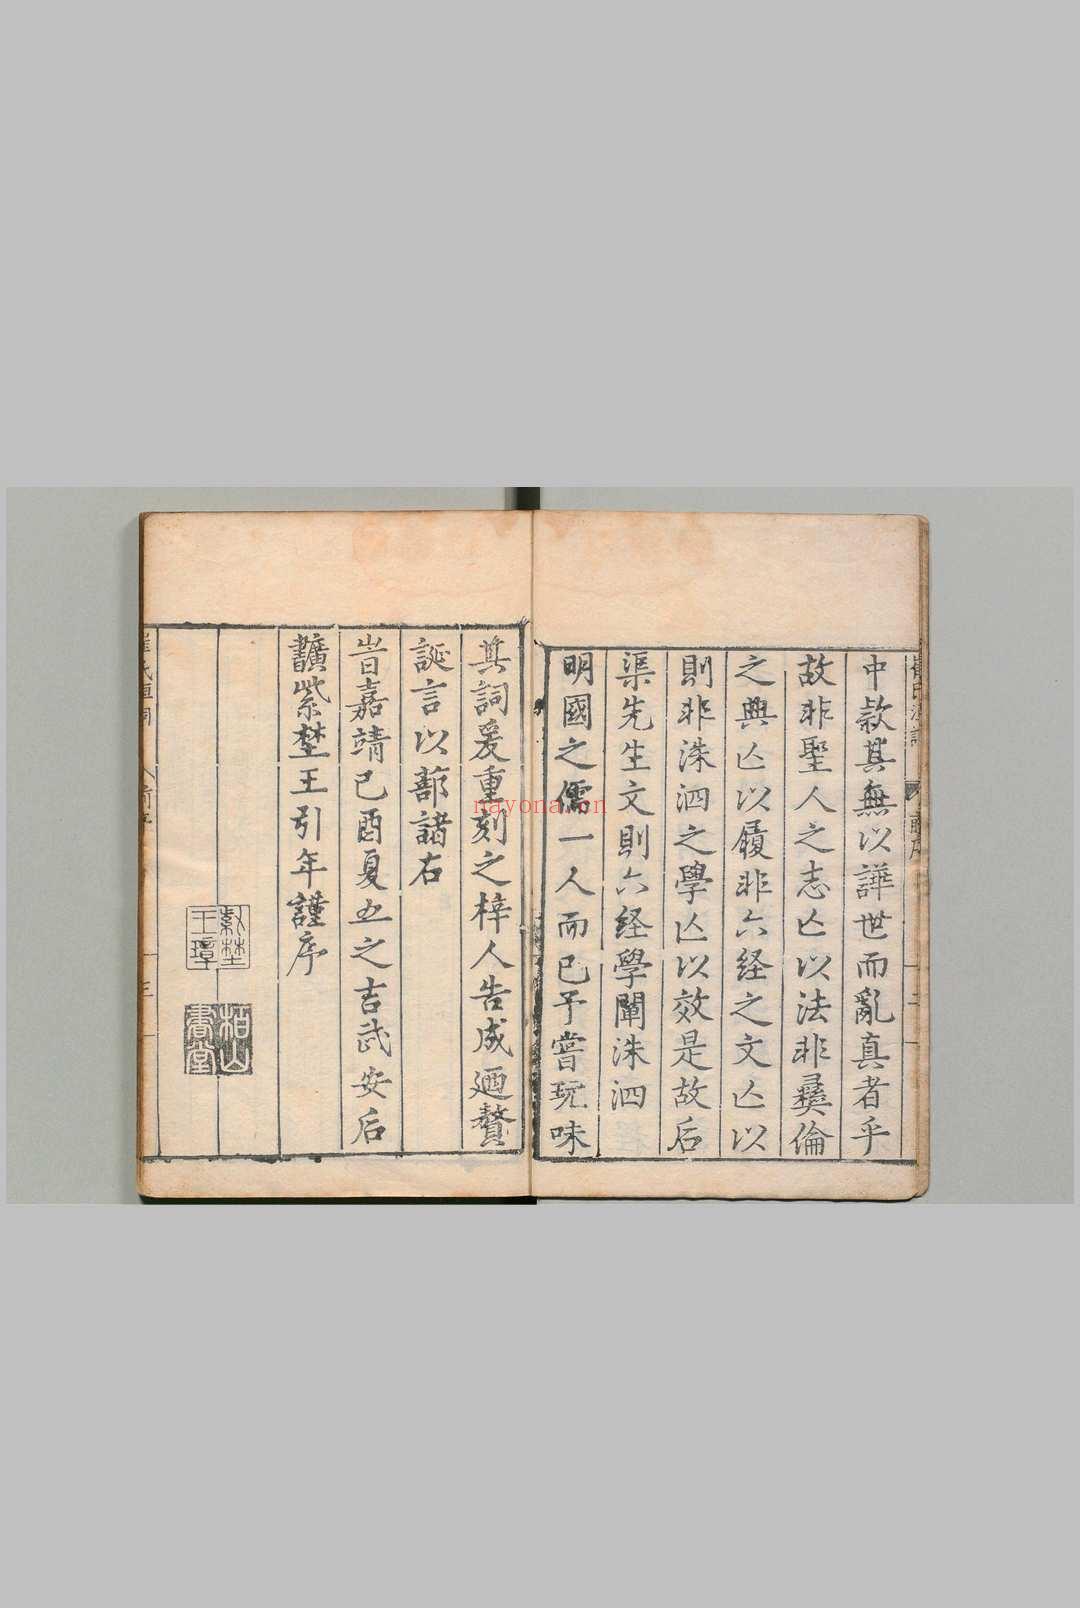 中欵其無以譁世而亂真者乎
故非聖人之志亾以法非彛倫
之典亾以履非六経之文亾以
則非洙泗之學亾以效是故后
渠先生文則六経學闡洙泗
明國之儒一人而已予嘗玩味
其詞爰重刻之梓人告成廼贅
誕言以蔀諸右
旹嘉靖己酉夏五之吉武安后
學紫埜王引年謹序
紫埜
王璋
栢山
書堂
nayona.cn